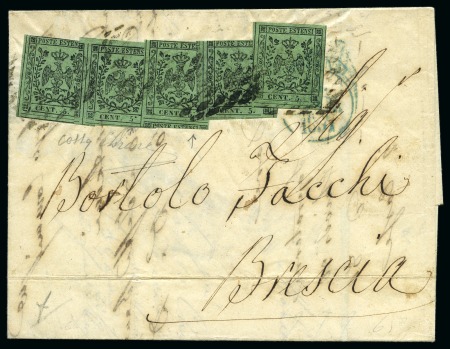 POSTE ESTENSI POSTE ESTENSI POSTE ESTENSI POSTE ESTENSI POSTE ESTENSI
CENT. 5. CENT. 5. CENT. 5. CENT. 5.
POSTE ESTENSI
Sig
Bortolo Facchi
Brescia